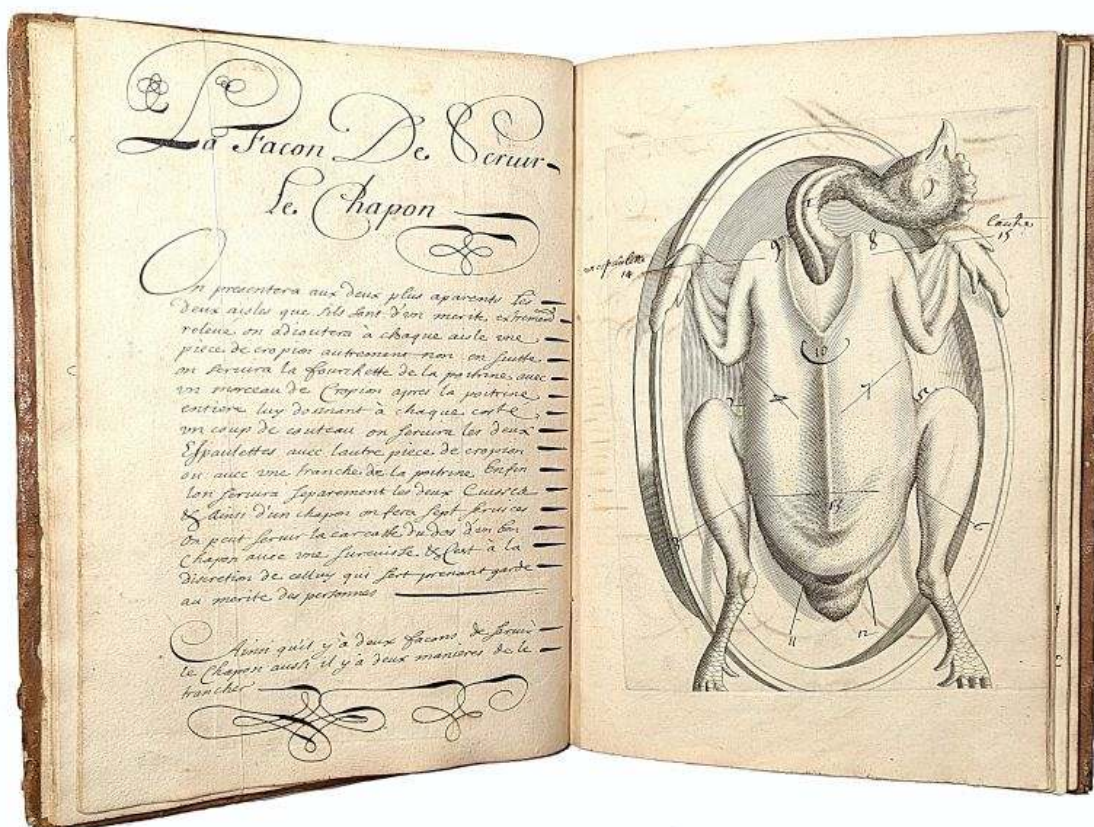 La Facon De Seruir
Le Chapon
On presentera aux deux plus aparents les
deux aisles que sils sont d'un merite extremem
releue on adioutera à chaque aisle vne
piece de cropion autrement non en suitte
on seruira la fourchette de la poitrine auec
vn morceau de Cropion apres la poitrine
entiere luy donnant à chaque costé
vn coup de couteau on seruira les deux
Espaulettes auec lautre piece de cropion
ou auec vne tranche de la poitrine Enfin
lon seruira separement les deux Cuisses
& Ainsi d'un chapon on fera sept seruices
On peut seruir la carcasse du dos d'un bon
Chapon auec vne surcuisse & C'est à la
discretion de celluy qui sert prenant garde
au merite des personnes
Ainsi qu'il y à deux facons de seruir
le Chapon aussi il y à deux manieres de le
trancher
1
9
8
14
Lautre
15
10
4
7
2
5
13
3
6
11
12